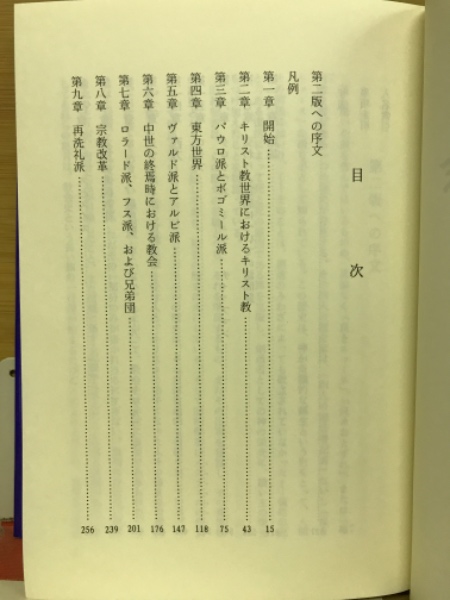 目次
第二版への序文
凡例
第一章 開始……15
第二章 キリスト教世界におけるキリスト教……43
第三章 パウロ派とボゴミール派……75
第四章 東方世界……118
第五章 ヴァルド派とアルビ派……147
第六章 中世の終焉時における教会……176
第七章 ロラード派、フス派、および兄弟団……201
第八章 宗教改革……239
第九章 再洗礼派……256